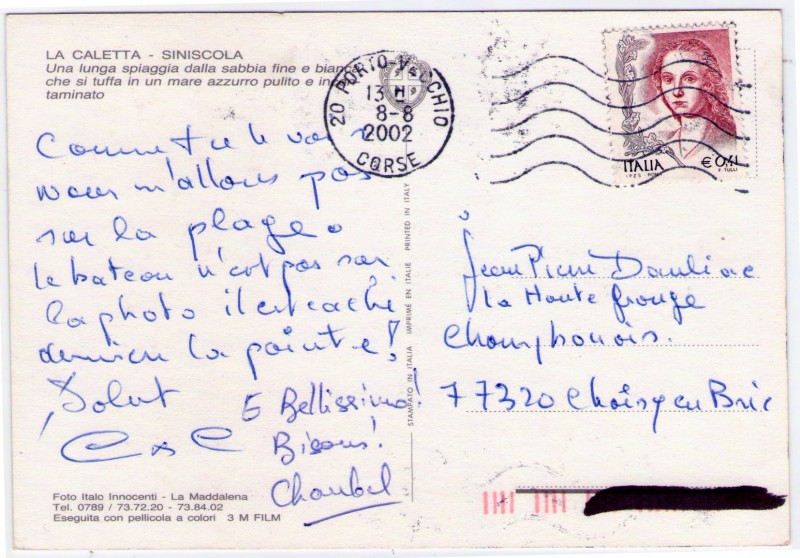 LA CALETTA - SINISCOLA
Una lunga spiaggia dalla sabbia fine e bianc
che si tuffa in un mare azzurro pulito e in
taminato
20 PORTO-VECCHIO
13 H
8-8
2002
CORSE
ITALIA
€ 0,41
I.P.Z.S. ROMA
F. TULLI
Comme tu le vois
nous n'allons pas
sur la plage.
le bateau n'est pas sur
la photo il est caché
derrière la pointe!
Salut
E Bellissimo!
Bisous!
STAMPATO IN ITALIA IMPRIMÉ EN ITALIE PRINTED IN ITALY
Jean Pierre Dauliac
La Haute Grouge
Champbonois.
77320 Choisy en Brie
Foto Italo Innocenti - La Maddalena
Tel. 0789 / 73.72.20 - 73.84.02
Eseguita con pellicola a colori 3 M FILM